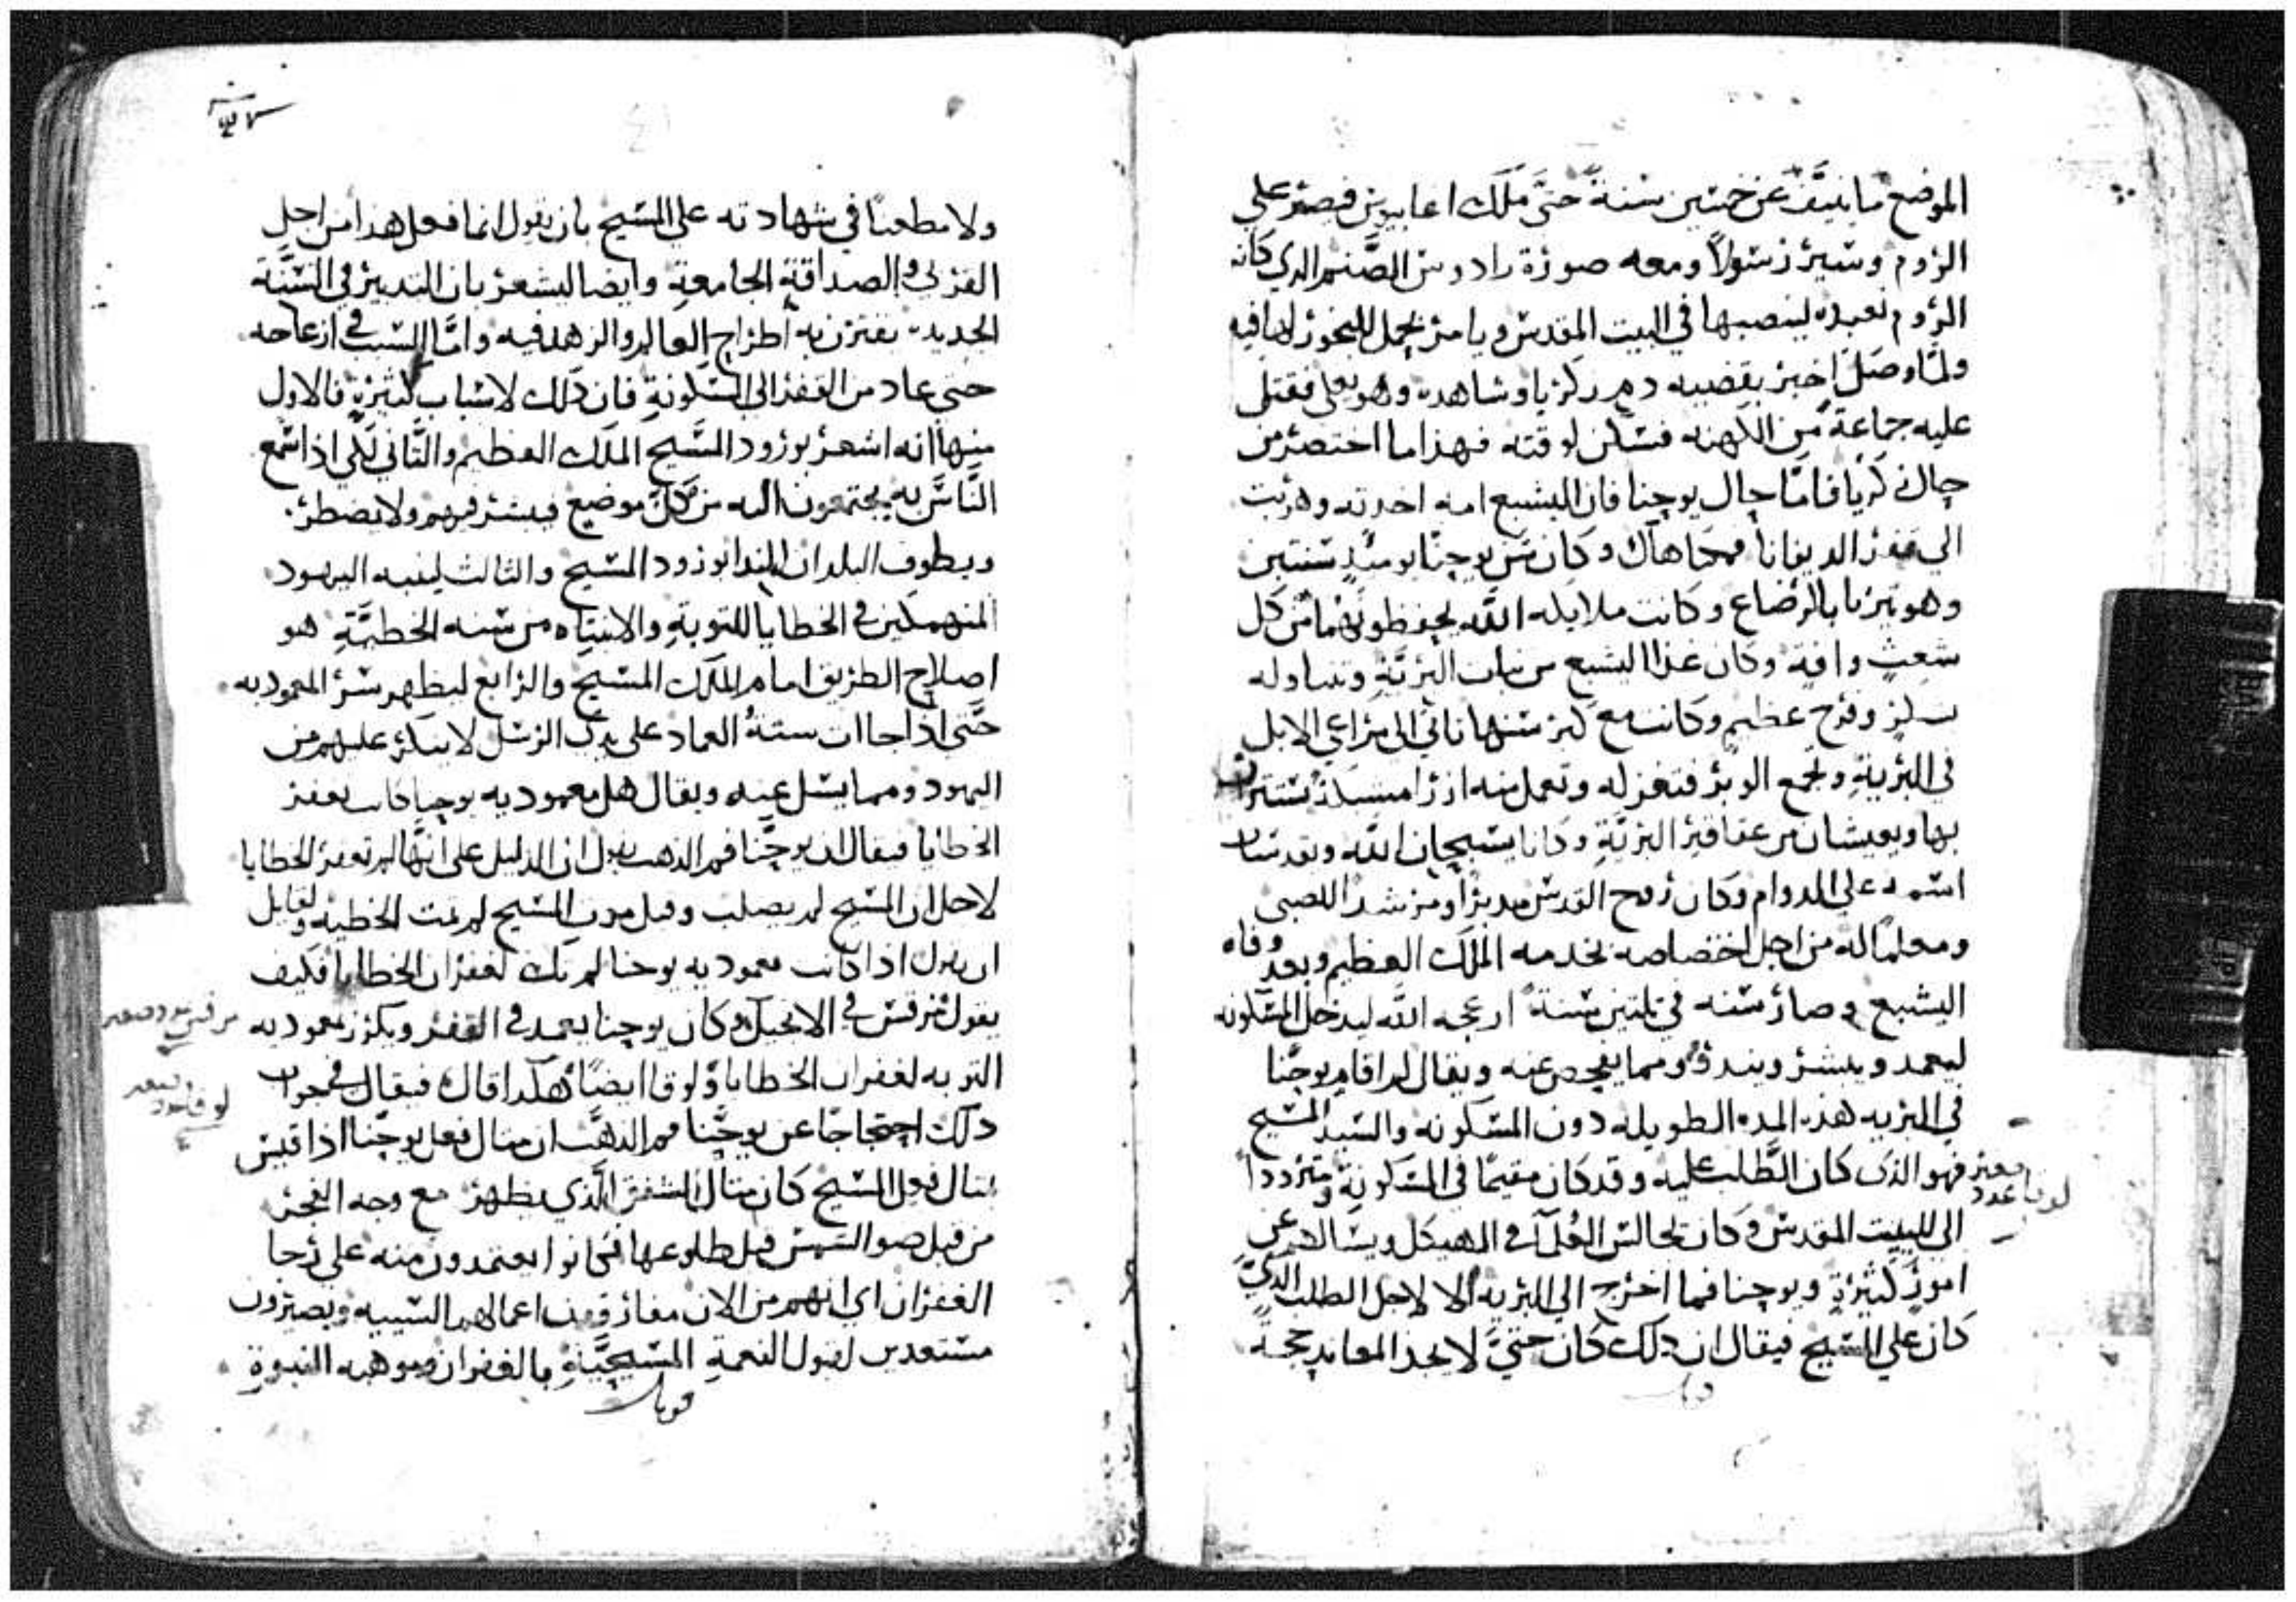 الموضع ما نيف عن خمسين سنة حتى ملك اغابيوس قيصر على
الروم وسير رسولا ومعه صورة رادوس الصنم الدي كانه
الروم تعبده لينصبها في البيت المقدس ويامر بحمل البخور لها فيه
ولما وصل اخبر بقضيه دم زكريا وشاهده وهو يغلي فقتل
عليه جماعة من الكهنه فسكن لوقته فهذا ما اختصر من
حال زكريا فاما حال يوحنا فان اليشبع امه اخدته وهربت
الي قفر الديفانا فمحاهاك وكان سن يوحنا يوميد سنتين
وهو تيربا بالرضاع وكانت ملايكه الله يحفظونهما من كل
شعث وافة وكان غدا اليشبع من نبات البرية وتتناوله
بشكر وفرح عظيم وكانت مع كبر سنها تاتي الى مراعي الابل
في البرية وتجمع الوبر فتغزله وتعمل منه ازرا مسبلة تستتران
بها ويعيشان من عقاقير البرية وكانا يسبحان الله ويقدسان
اسمه على الدوام وكان روح القدس مدبرا ومرشدا للصبي
ومعلما له من اجل اختصاصه بخدمه الملك العظيم وبعد وفاه
اليشبع وصار سنه في تلتين سنة ازعجه الله ليدخل المسكونه
ليعمد ويبشر وينذر ومما يفحص عنه ويقال لم اقام يوحنا
في البريه هذه المده الطويله دون المسكونه والسيد المسيح
فهو الذى كان الطلب عليه وقد كان مقيما في المسكونة ومترددا
لوقا عدد
الي البيت المقدس وكان يجالس العلمآ في الهيكل ويسالهم عن
امور كثيرة ويوحنا فما اخرج الي البريه الا لاجل الطلب الذي
كان علي المسيح فيقال ان ذلك كان حتى لا يجد المعاند حجة
ولا مطعنا في شهادته على المسيح بان يقول انما فعل هذا من اجل
القربى والصداقة الجامعة وايضا ليشعر بان التدبير في السنة
الجديده يقترن به اطراح العالم والزهد فيه واما السبب في ازعاجه
حتى عاد من القفر الى المسكونة فان ذلك لاسباب كثيرة فالاول
منها انه اشعر بورود المسيح الملك العظيم والثاني لكي اذا سمع
الناس به يجتمعون اليه من كل موضع فيبشرهم ولا يضطر
ويطوف البلدان للندا بورود المسيح والثالث لينبه اليهود
المنهمكين في الخطايا للتوبة والانتباه من سنه الخطية هو
اصلاح الطريق امام الملك المسيح والرابع ليظهر سر المعموديه
حتى اذا جاات سنة العماد على يدي الرسل لا ينكر عليهم من
اليهود ومما يسل عنه ويقال هل معموديه يوحنا كانت لغفر
الخطايا فيقال ان يوحنا فم الذهب يقول ان الدليل على انها لم تغفر الخطايا
لاجل ان المسيح لم يصلب وقبل موت المسيح لم تمت الخطيه ولقايل
ان يقول اذا كانت معموديه يوحنا لم تك لغفران الخطايا فكيف
يقول مرقس في الانجيل وكان يوحنا يعمد في القفر ويكرز بمعموديه
التوبه لغفران الخطايا ولوقا ايضا هكدا قال فيقال في جواب
لوقا عدد
ذلك احتجاجا عن يوحنا فم الدهب ان مثال فعل يوحنا اذا قيس
بمثال فعل المسيح كان مثال الشفق الذي يظهر مع وجه الفجر
من قبل ضو الشمس قبل طلوعها فكانوا يعتمدون منه على رجا
الغفران اي انهم من الان مفارقون اعمالهم السييه ويصيرون
مستعدين لقبول النعمة المسيحية بالغفران وموهبه النبوة
قوبل